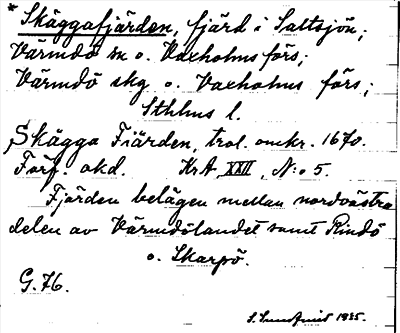 * Skäggafjärden, fjärd i Saltsjön;
Värmdö sn o. Vaxholms förs;
Värmdö skg o. Vaxholms förs;
Sthlms l.
Skägga Fiärden, trol. omkr. 1670.
Förf. okd. KrA XXII, N:o 5.
Fjärden belägen mellan nordvästra
delen av Värmdölandet samt Rindö
o. Skarpö.
G. 76.
S. Sundqvist 1935.